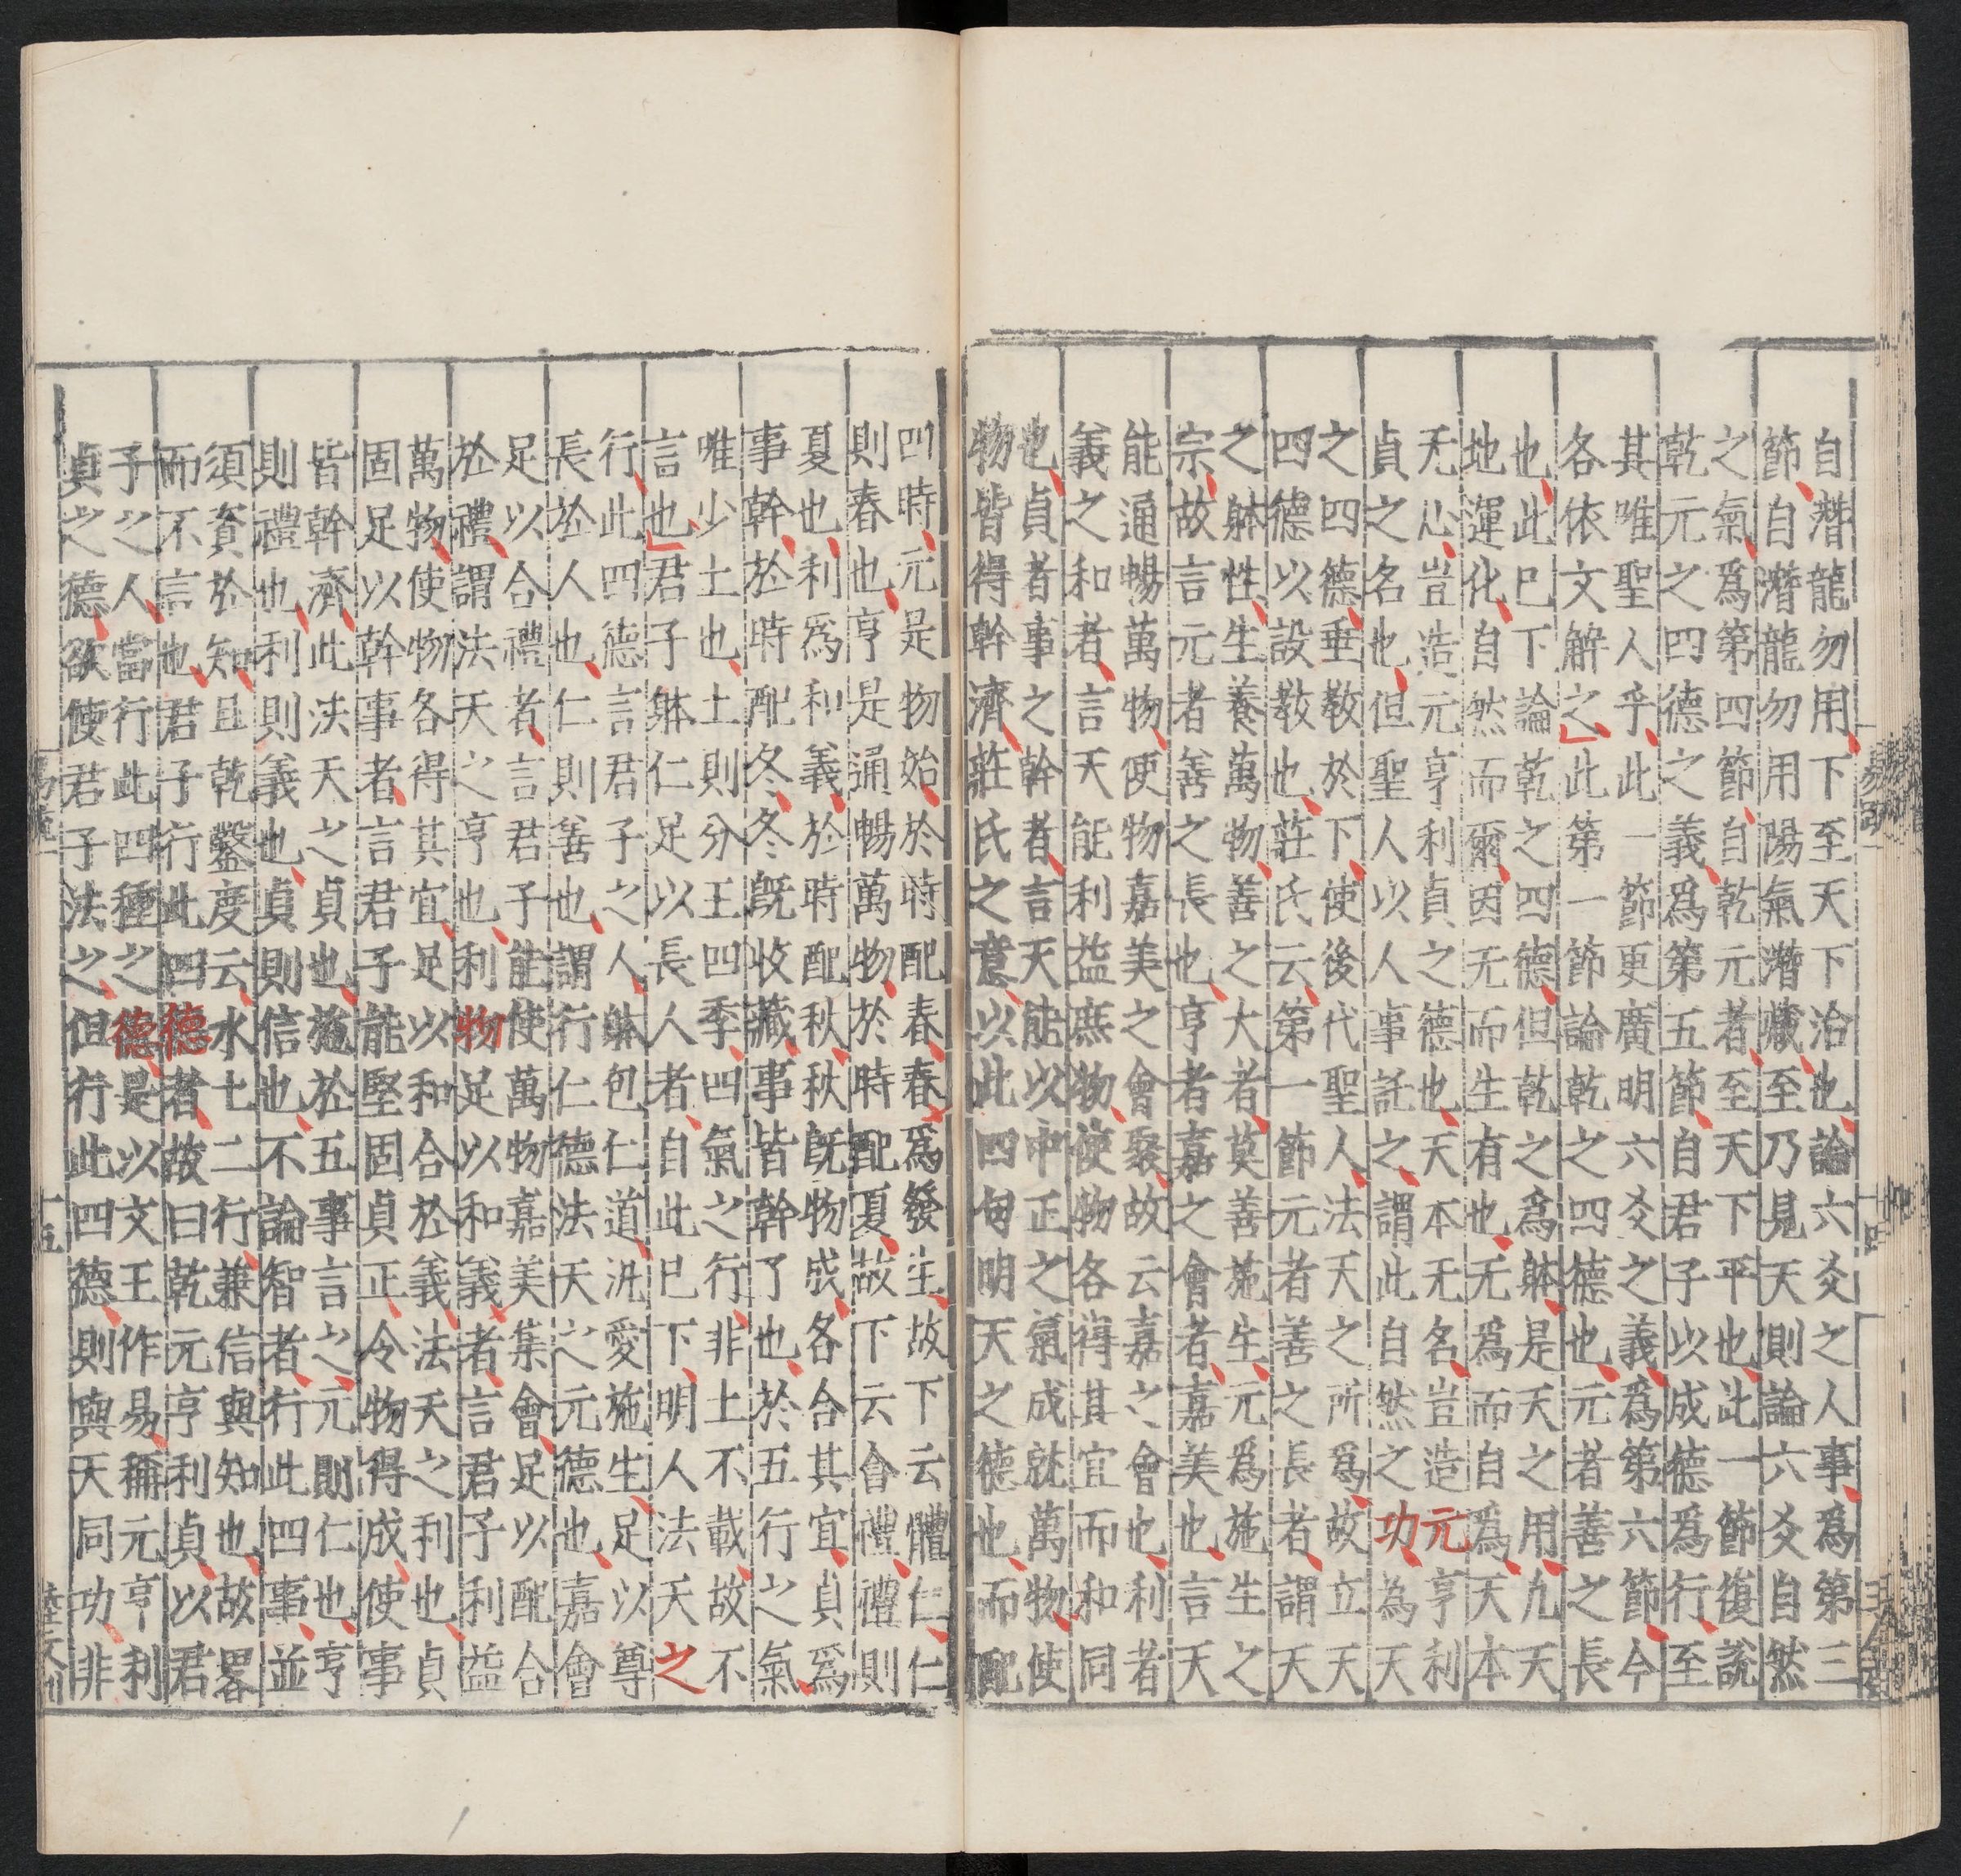 自潛龍勿用下至天下治也論六爻之人事爲第三
節自潛龍勿用陽氣潛藏至乃見天則論六爻自然
之氣爲第四節自乾元者至天下平也此一節復說
乾元之四德之義爲第五節自君子以成德爲行至
其唯聖人乎此一節更廣明六爻之義爲第六節今
各依文解之此第一節論乾之四德也元者善之長
也此已下論乾之四德但乾之爲躰是天之用凢天
地運化自然而爾因无而生有也无爲而自爲天本
无心豈造元亨利貞之德也天本无名豈造元亨利
貞之名也但聖人以人事託之謂此自然之功為天
之四德垂敎於下使後代聖人法天之所爲故立天
四德以設敎也莊氏云第一節元者善之長者謂天
之躰性生養萬物善之大者莫善施生元爲施生之
宗故言元者善之長也亨者嘉之會者嘉美也言天
能通暢萬物使物嘉美之會聚故云嘉之會也利者
義之和者言天能利益庶物使物各得其宜而和同
也貞者事之幹者言天能以中正之氣成就萬物使
物皆得幹濟莊氏之意以此四句明天之德也而配
四時元是物始於時配春春爲發生故下云體仁仁
則春也亨是通暢萬物於時配夏故下云會禮禮則
夏也利爲和義於時配秋秋旣物成各合其宜貞爲
事幹於時配冬冬旣收藏事皆幹了也於五行之氣
唯少土也土則分王四季四氣之行非土不載故不
言也君子躰仁足以長人者自此已下明人法天之
行此四德言君子之人躰包仁道汎愛施生足以尊
長於人也仁則善也謂行仁德法天之元德也嘉會
足以合禮者言君子能使萬物嘉美集會足以配合
於禮謂法天之亨也利物足以和義者言君子利益
萬物使物各得其宜足以和合於義法天之利也貞
固足以幹事者言君子能堅固貞正令物得成使事
皆幹濟此法天之貞也施於五事言之元則仁也亨
則禮也利則義也貞則信也不論智者行此四事並
須資於知且乾鑿度云水土二行兼信與知也故畧
而不言也君子行此四德者故曰乾元亨利貞以君
子之人當行此四種之德是以文王作易稱元亨利
貞之德欲使君子法之但行此四德則與天同功非